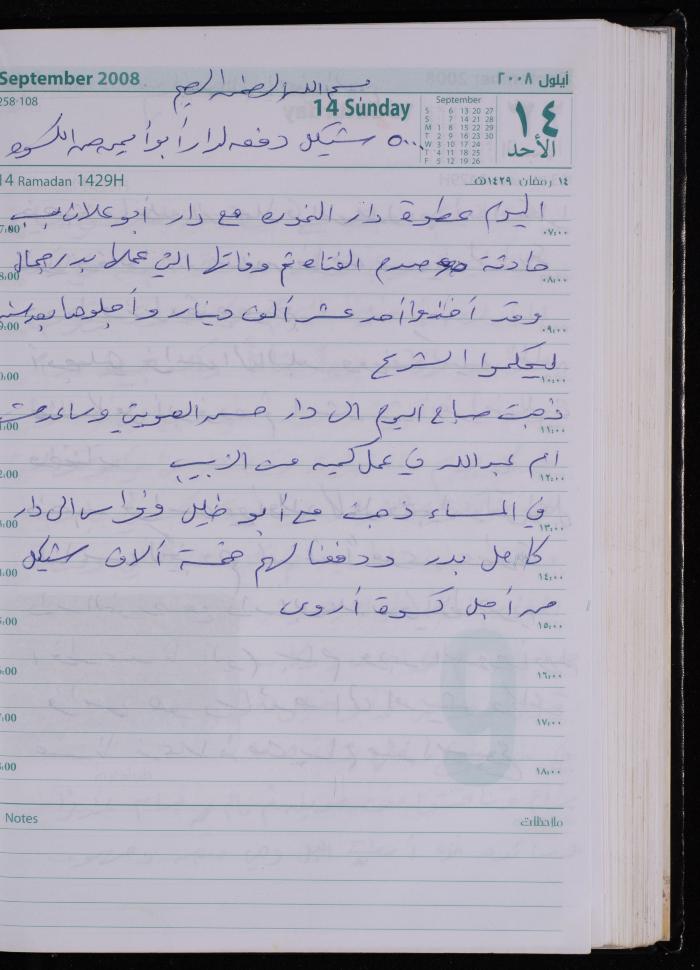 September 2008
أيلول ٢٠٠٨
بسم الله الرحمن الرحيم
258-108
14 Sunday
١٤
الأحد
September
S 6 13 20 27
S 7 14 21 28
M 1 8 15 22 29
T 2 9 16 23 30
W 3 10 17 24
T 4 11 18 25
F 5 12 19 26
٥٠٠٠ شيكل دفعه لدار أبو أيمن من الكسوه
14 Ramadan 1429H
١٤ رمضان ١٤٢٩هـ
اليوم عطوة دار مع دار أبو علان بسبب
7:00
٠٧:٠٠
حادثة صدم الفتاه ثم وفاتها التي عملها بدر جمال
8:00
٠٨:٠٠
وقد أخذوا أحد عشر ألف دينار وأجلوها بعد سنه
9:00
٠٩:٠٠
ليحكموا الشرع
0.00
١٠:٠٠
ذهبت صباح اليوم الى دار حسن وساعدت
1.00
١١:٠٠
ام عبدالله في عمل كميه من الزبيب
2.00
١٢:٠٠
في المساء ذهبت مع أبو خليل وفراس الى دار
3.00
١٣:٠٠
كامل بدر ودفعنا لهم خمسة آلاف شيكل
4.00
١٤:٠٠
من أجل كسوة أروى
5:00
١٥:٠٠
6:00
١٦:٠٠
7:00
١٧:٠٠
8:00
١٨:٠٠
Notes
ملاحظات